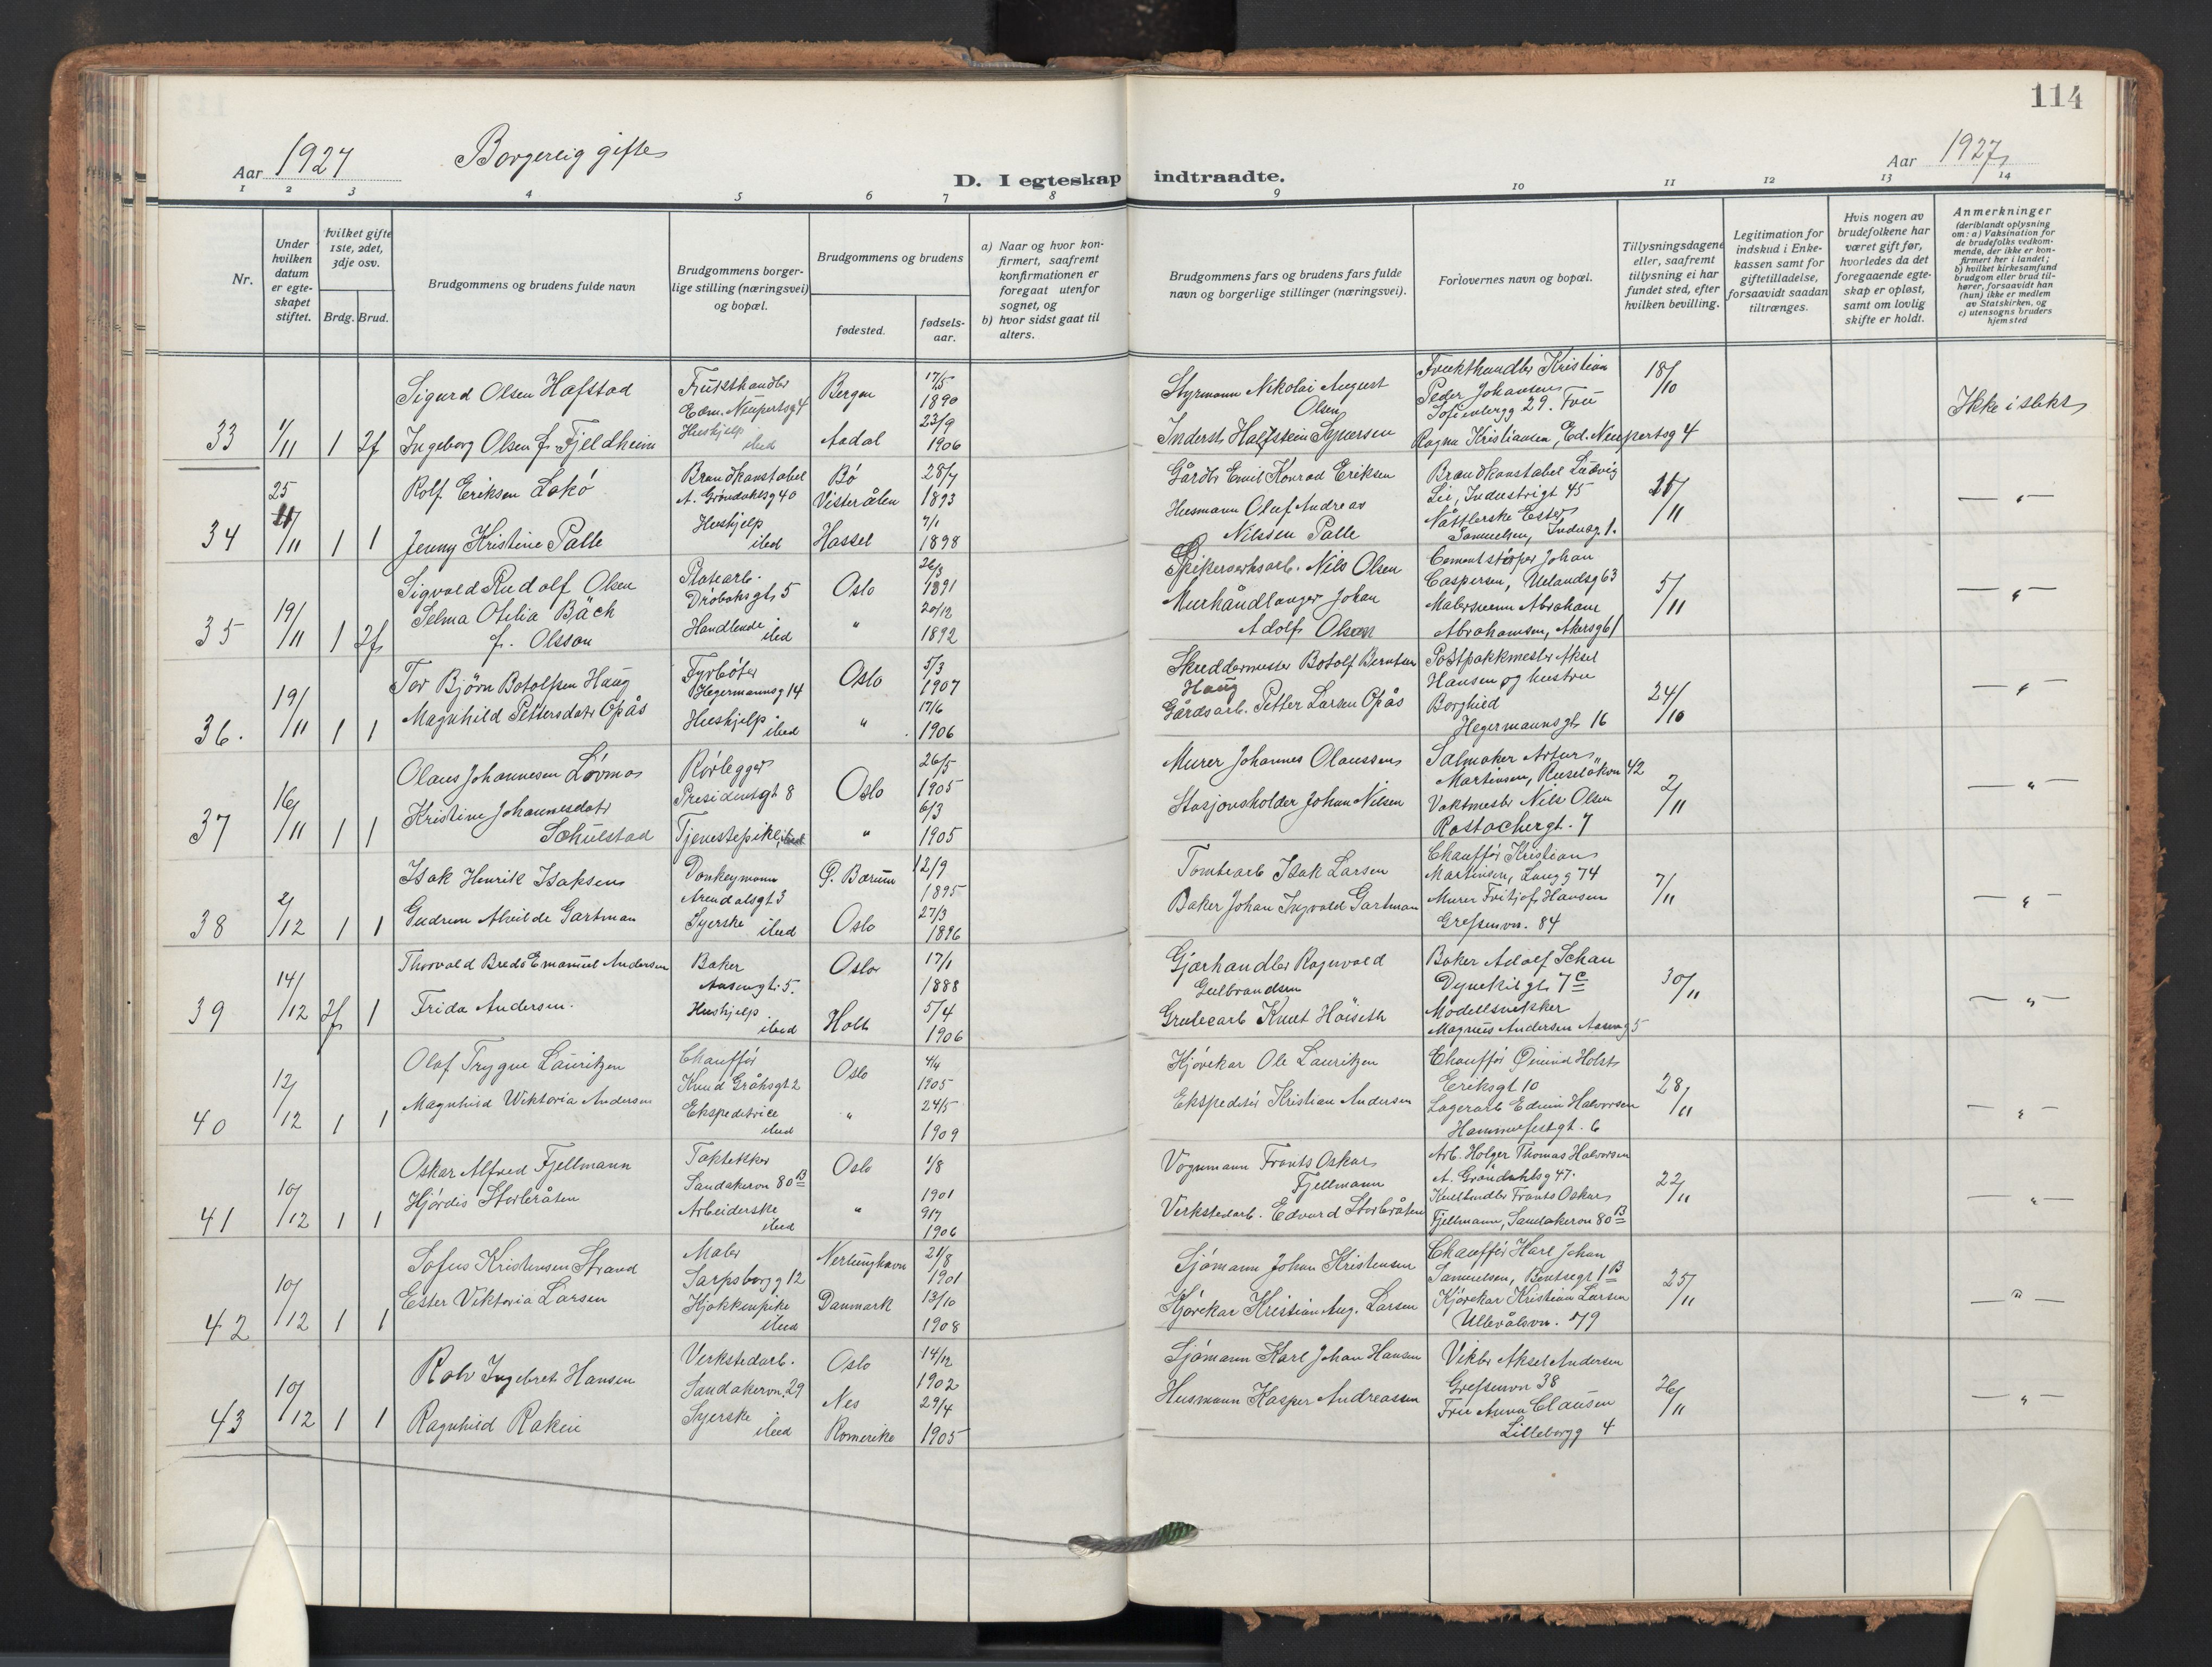 114
Aar 1927 Borgerlig gifte
Aar 1927
D. I egteskap indtraadte.
1 2 3 4 5 6 7 8 9 10 11 12 13 14
Nr.
Under hvilken datum er egteskapet stiftet.
Hvilket gifte 1ste, 2det, 3dje osv.
Brdg. Brud.
Brudgommens og brudens fulde navn
Brudgommens borgerlige stilling (næringsvei) og bopæl.
Brudgommens og brudens
fødested.
fødselsaar.
a) Naar og hvor konfirmert, saafremt konfirmationen er foregaat utenfor sognet, og
b) hvor sidst gaat til alters.
Brudgommens fars og brudens fars fulde navn og borgerlige stillinger (næringsvei).
Forlovernes navn og bopæl.
Tillysningsdagene eller, saafremt tillysning ei har fundet sted, efter hvilken bevilling.
Legitimation for indskud i Enkekassen samt for giftetilladelse, forsaavidt saadan tiltrænges.
Hvis nogen av brudefolkene har været gift før, hvorledes da det foregaaende egteskap er opløst, samt om lovlig skifte er holdt.
Anmerkninger (deriblandt oplysning om: a) Vaksination for de brudefolks vedkommende, der ikke er konfirmert her i landet; b) hvilket kirkesamfund brudgom eller brud tilhører, forsaavidt han (hun) ikke er medlem av Statskirken, og c) utensogns bruders hjemsted
33 1/11 1 2f
Sigurd Olsen Hafstad
Ingeborg Olsen f. Fjeldheim
Frukthandler
Edm. Neupertsg 4
Hushjelp
ibid
Bergen 17/5 1890
Aadal 23/9 1906
Styrmann Nikolai August
Olsen
Inderst Halfstein Syversen
Frukthandler Kristian
Peder Johansen
Sofienbergg 29. Fru
Ragna Kristiansen, Ed. Neupertsg 4
18/10
Ikke i slekt
34 25/11 1 1
Rolf Eriksen Lokö
Jenny Kristine Palle
Brandkonstabel
A. Gröndahlsg 40
Hushjelp
ibid
Bö
Vesterålen 28/7 1893
Hassel 7/1 1898
Gårdbr Emil Konrad Eriksen
Husmann Oluf Andreas
Nilssen Palle
Brandkonstabel Ludvig
Lie, Industrigt 45
Nåtlerske Ester
Samuelsen, Industg. 1.
11/11
— " —
35 19/11 1 2f
Sigvald Rudolf Olsen
Selma Otilia Bäck
f. Olsson
Platearb.
Dröbaksgt 5
Handlende
ibid
Oslo 26/3 1891
" 20/12 1892
Spikerverksarb. Nils Olsen
Murhåndlanger Johan
Adolf Olsson
Cementstöper Johan
Caspersen, Uelandsg 63
Malersvenn Abraham
Abrahamsen, Akersg 61
5/11
— " —
36. 19/11 1 1
Tor Björn Botolfsen Haug
Magnhild Pettersdatr Opås
Fyrböter
Hegermannsg 14
Hushjelp
ibid
Oslo 5/3 1907
" 17/6 1906
Skreddermester Botolf Berntsen
Haug
Gårdsarb. Petter Larsen Opås
Postpakkmester Aksel
Hansen og hustru
Borghild
Hegermannsgt 16
24/10
— " —
37 16/11 1 1
Olaus Johannesen Lövmo
Kristine Johannesdatr
Schulstad
Rörlegger
Presidentgt 8
Tjenestepike, ibid
Oslo 26/5 1905
" 6/3 1905
Murer Johannes Olaussen
Stasjonsholder Johan Nilsen
Salmaker Artur
Martinsen, Ruselökvn 42
Vaktmester Nils Olsen
Rostochergt. 7
2/11
— " —
38 2/12 1 1
Isak Henrik Isaksen
Gudrun Alvilde Gartman
Donkeymann
Arendalsgt 3
Syerske ibid
Ö. Bærum 12/9 1895
Oslo 27/3 1896
Tomtearb Isak Larsen
Baker Johan Ingvald Gartman
Chaufför Kristian
Martinsen, Langg 74
Murer Fritjof Hansen
Grefsenvn. 84
7/11
— " —
39 14/12 2f 1
Thorvald Bredo Emanuel Andersen
Frida Andersen.
Baker
Aasengt. 5.
Hushjelp
ibid
Oslo 17/1 1888
Holt 5/4 1906
Gjærhandler Ragnvald
Gulbrandsen
Grubearb Knut Höiseth
Baker Adolf Schau
Dynekilgt 7c
Modellsnekker
Magnus Andersen Aaseng 5
30/11
— " —
40 12/12 1 1
Olaf Trygve Lauritzen
Magnhild Wiktoria Andersen
Chaufför
Knud Gråhsgt 2
Ekspeditrice
ibid
Oslo 4/4 1905
" 24/5 1909
Kjörekar Ole Lauritzen
Ekspeditör Kristian Andersen
Chaufför Öivind Holst
Eriksgt 10
Lagerarb Edvin Halvorsen
Hammerfestgt. 6
28/11
— " —
41 10/12 1 1
Oskar Alfred Fjellmann
Hjördis Storbråten
Taktekker
Sandakervn 80 B
Arbeiderske
ibid
Oslo 1/8 1901
" 9/7 1906
Vognmann Frants Oskar
Fjellmann
Verkstedarb. Edvard Storbråten
Arb. Holger Thomas Halvorsen
A. Gröndahlsg 47.
Kulhandler Frants Oskar
Fjellmann, Sandakervn 80 B
22/11
— " —
42 10/12 1 1
Sofus Kristensen Strand
Ester Viktoria Larsen
Maler
Sarpsborgg 12
Kjökkenpike
ibid
Danmark 21/8 1901
13/10 1908
Sjömann Johan Kristensen
Kjörekar Kristian Aug. Larsen
Chauffør Karl Johan
Samuelsen, Bentsegt 1 B
Kjörekar Kristian Larsen
Ullevålsvn. 79
25/11
— " —
43 10/12 1 1
Rolv Ingebret Hansen
Ragnhild Rakin
Verkstedarb.
Sandakervn. 29
Syerske
ibid
Oslo 14/12 1902
Nes
Romerike 29/4 1905
Sjömann Karl Johan Hansen
Husmann Kasper Andreassen
Vekter Aksel Andersen
Grefsenvn 38
Fru Anna Clausen
Lilleborgg 4
26/11
— " —